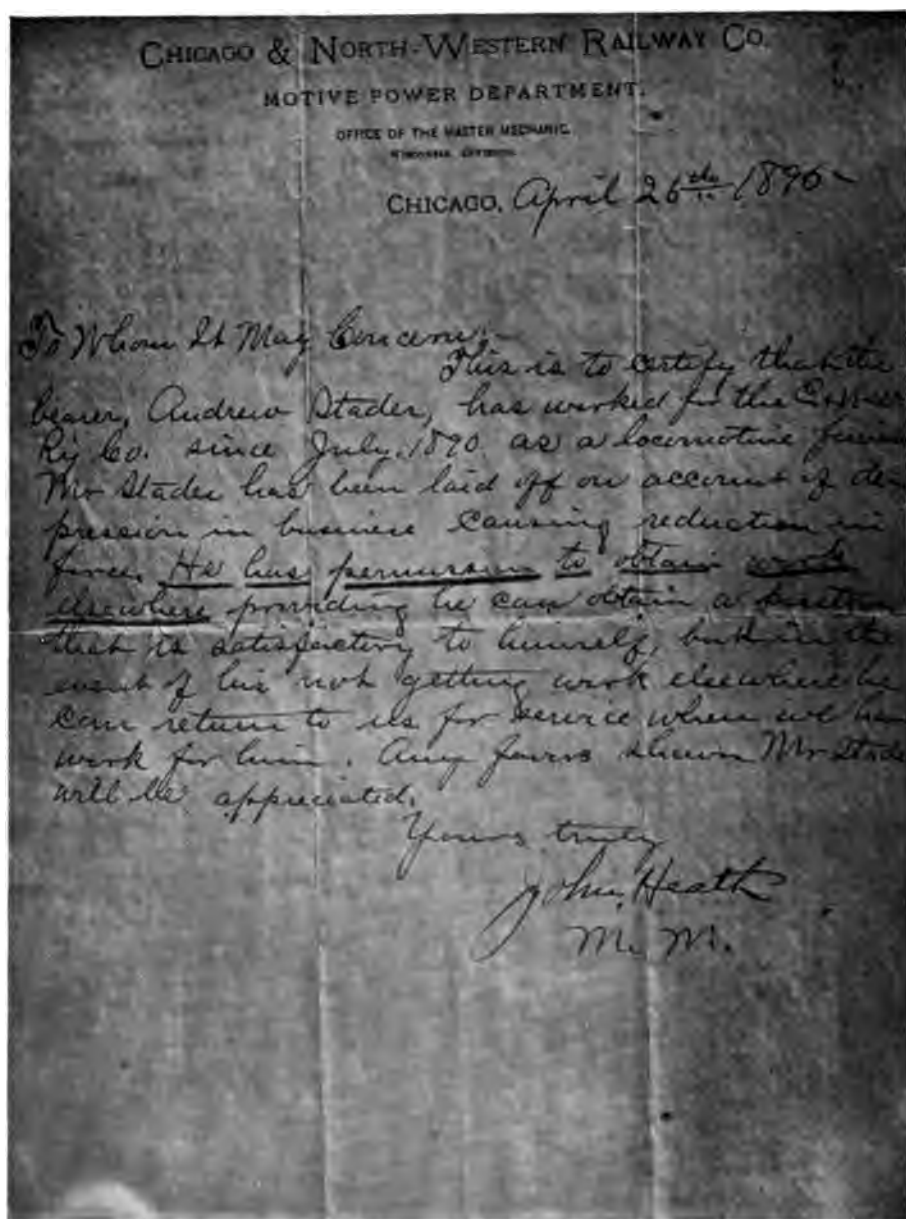 CHICAGO & NORTH-WESTERN RAILWAY CO.
MOTIVE POWER DEPARTMENT.
OFFICE OF THE MASTER MECHANIC.
WISCONSIN DIVISION.
CHICAGO, April 26th 1895
To Whom It May Concern:-
This is to certify that the
bearer, Andrew Stader, has worked for the
Ry Co. since July, 1890 as a locomotive
Mr Stader has been laid off on account of de-
pression in business causing reduction in
force. He has permission to obtain work
elsewhere providing he can obtain a
that is satisfactory to himself, but in the
event of his not getting work elsewhere he
can return to us for service when we
work for him. Any favors shown Mr
will be appreciated.
Yours truly
John Heath
M. M.